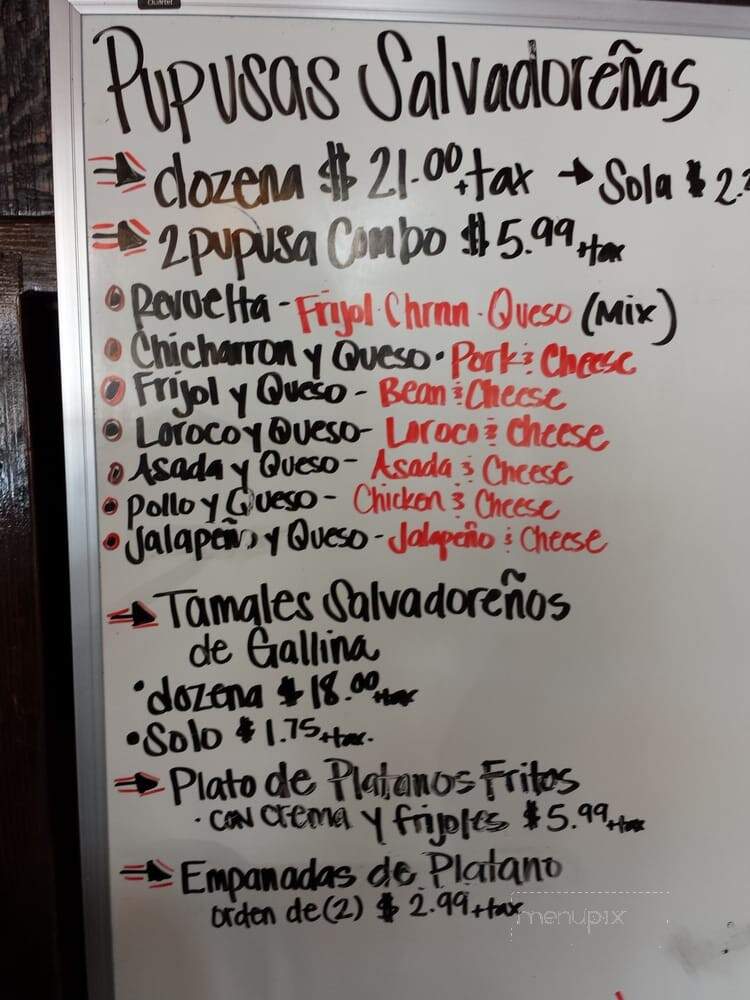 Quartet
Pupusas Salvadoreñas
dozena $21.00 +tax → Sola $
2 pupusa Combo $5.99 +tax
Revuelta - Frijol·Chrnn·Queso (Mix)
Chicharron y Queso · Pork & Cheese
Frijol y Queso - Bean & Cheese
Loroco y Queso - Loroco & Cheese
Asada y Queso - Asada & Cheese
Pollo y Queso - Chicken & Cheese
Jalapeño y Queso - Jalapeño & Cheese
Tamales Salvadoreños
de Gallina
• dozena $18.00 +tax
• Solo $1.75 +tax.
Plato de Platanos Fritos
· con crema y frijoles $5.99 +tax
Empanadas de Platano
orden de (2) $2.99 +tax
menupix